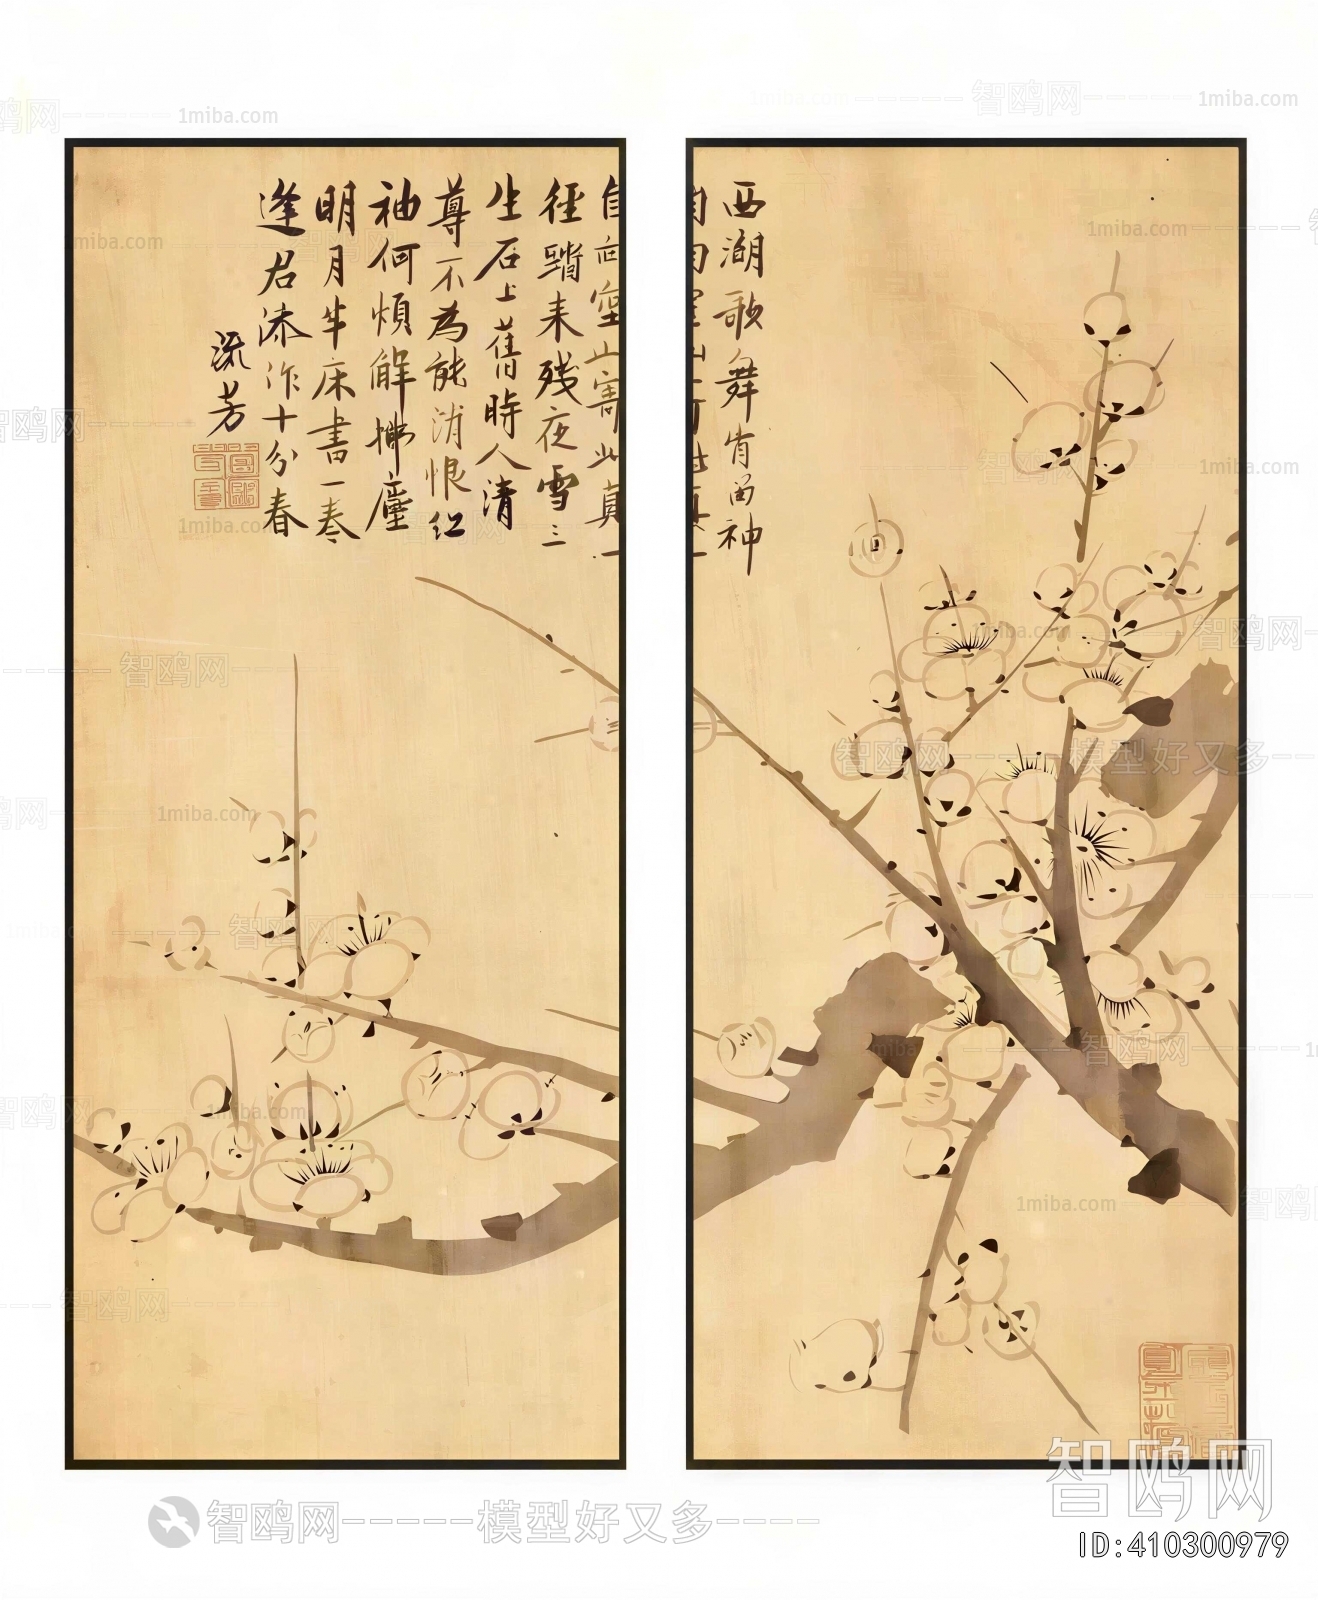 西湖歌舞肯留神
自向空山寄此真一
径踏来残夜雪三
生石上舊時人清
尊不為能消恨红
袖何煩解拂塵
明月半床書一卷
逢君添作十分春
流芳
1miba.com
智鸥网
模型好又多
智鸥网-----模型好又多----
智鸥网
ID:410300979